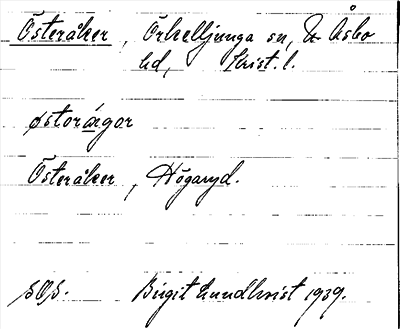 Österåker, Örkelljunga sn, N Åsbo
hd, Krist. l.
østorágor
Österåker, Högaryd.
SOS. Birgit Lundkvist 1939.